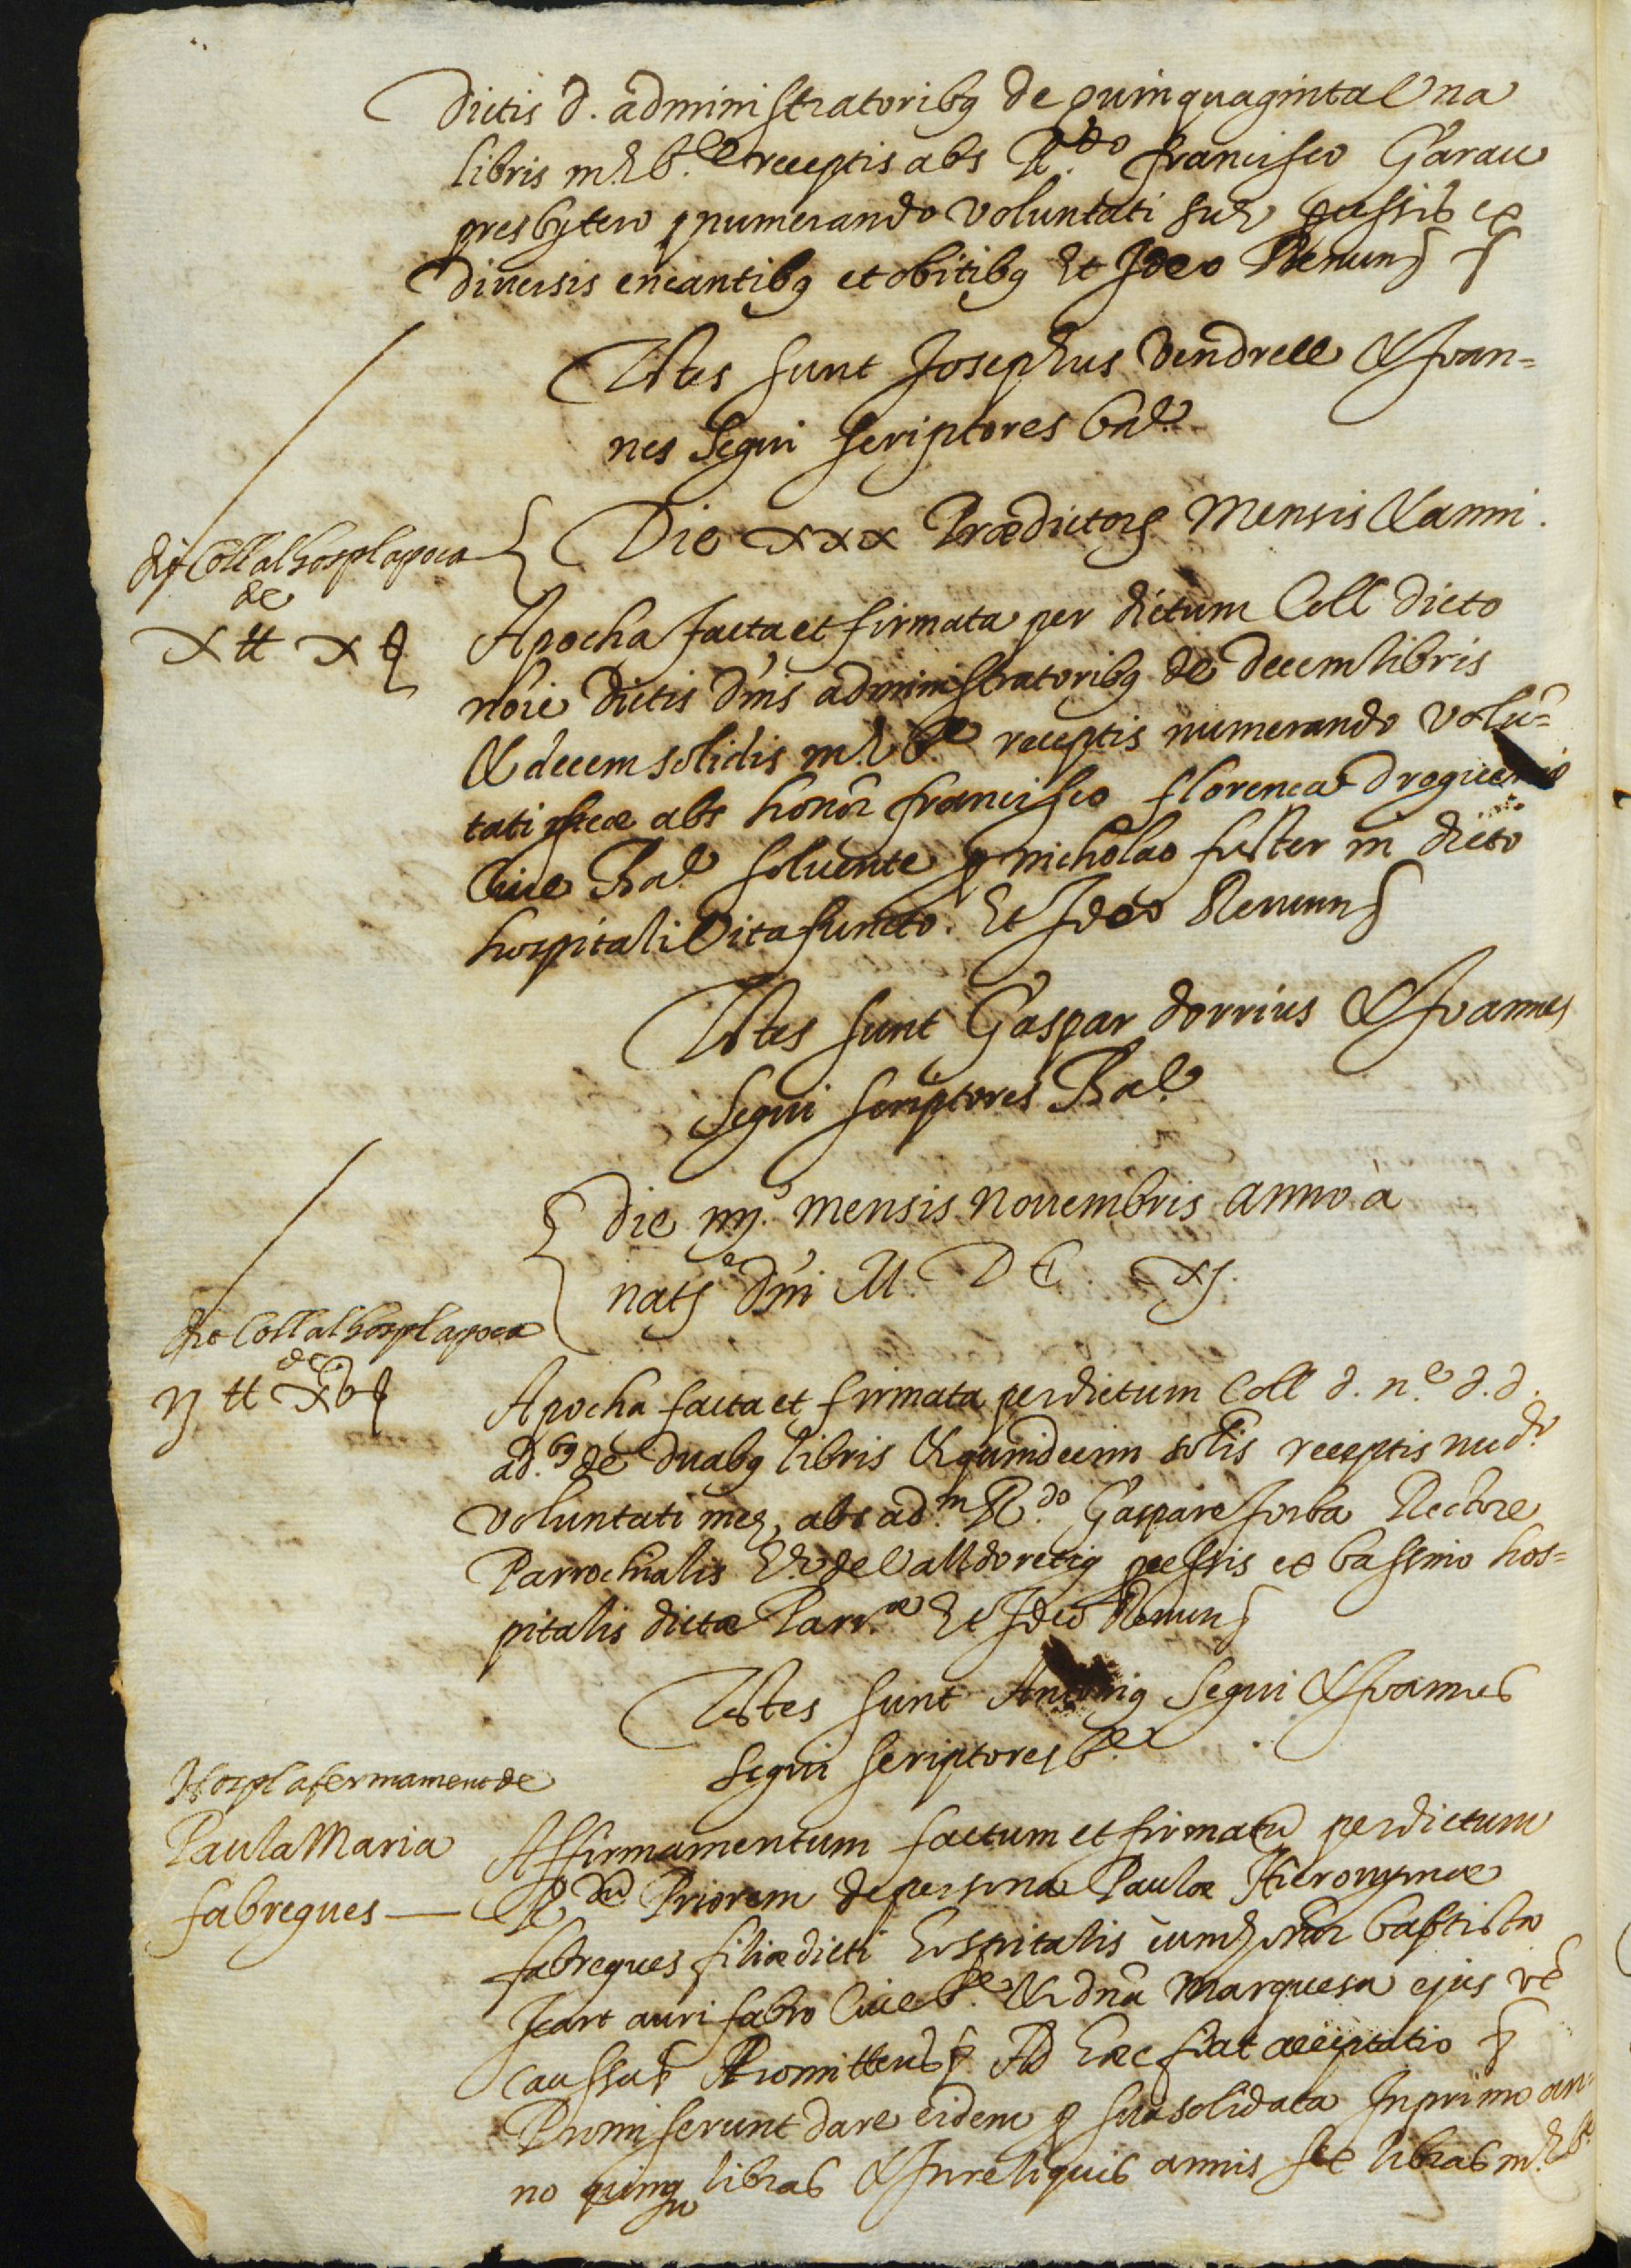 dictis d. administratoribq de quinquaginta Una
libris m. & b.le receptis abs R.do francisco Garau
presbytero numerando voluntati suę ex
diuersis encantibq et obitibq Et Ideo Renuns
Testes sunt Josephus Vendrell & Joan=
nes Segui scriptores bal.
Coll al hospl apoca
de
X tt X
Die xxx Prædictors Mensis & anni.
Apocha facta et firmata per dictum Coll dicto
noie dictis dnis administratoribq de decem libris
& decem solidis m. & b.e receptis numerando volu=
tati meæ abs honor francisco florenca
Ciue Bal. soluente p nicholao fuster in dicto
hospitali Vita functo. Et Ideo Renuns
Testes sunt Gaspar dorrius & Joannes
Segui scriptores Bal.
die iiij. mensis Nouembris anno à
nate dni M D C. XJ.
Coll al hospl apoca
de
ij tt XV
Apocha facta et firmata per dictum Coll d. n.e d. d.
ad.bq de duabq libris & quindecim solis receptis nud.o
voluntati meę, abs ad.m R.do Gaspare Forba Rectore
Parrochialis de Valldoreig ex bassino hos=
pitalis dictæ Parr.æ Et Ideo Renuns
Testes sunt Antoniq Segui & Joannes
Segui scriptores b.e
Hospl afermament de
Paula Maria
fabregues —
Affirmamentum factum et firmatū per dictum
R.dū Priorem de persona Paulæ Hieronymæ
fabregues filiæ dicti hospitalis cum honor baptista
Icart aurifabro Ciue b.e & dna Marquesa ejus
Caussa Promittens Ad hæc fiat acceptatio
Promiserunt dare eidem p sua solidata In primo an=
no quinq libras & In reliquis annis sex libras m. & b.